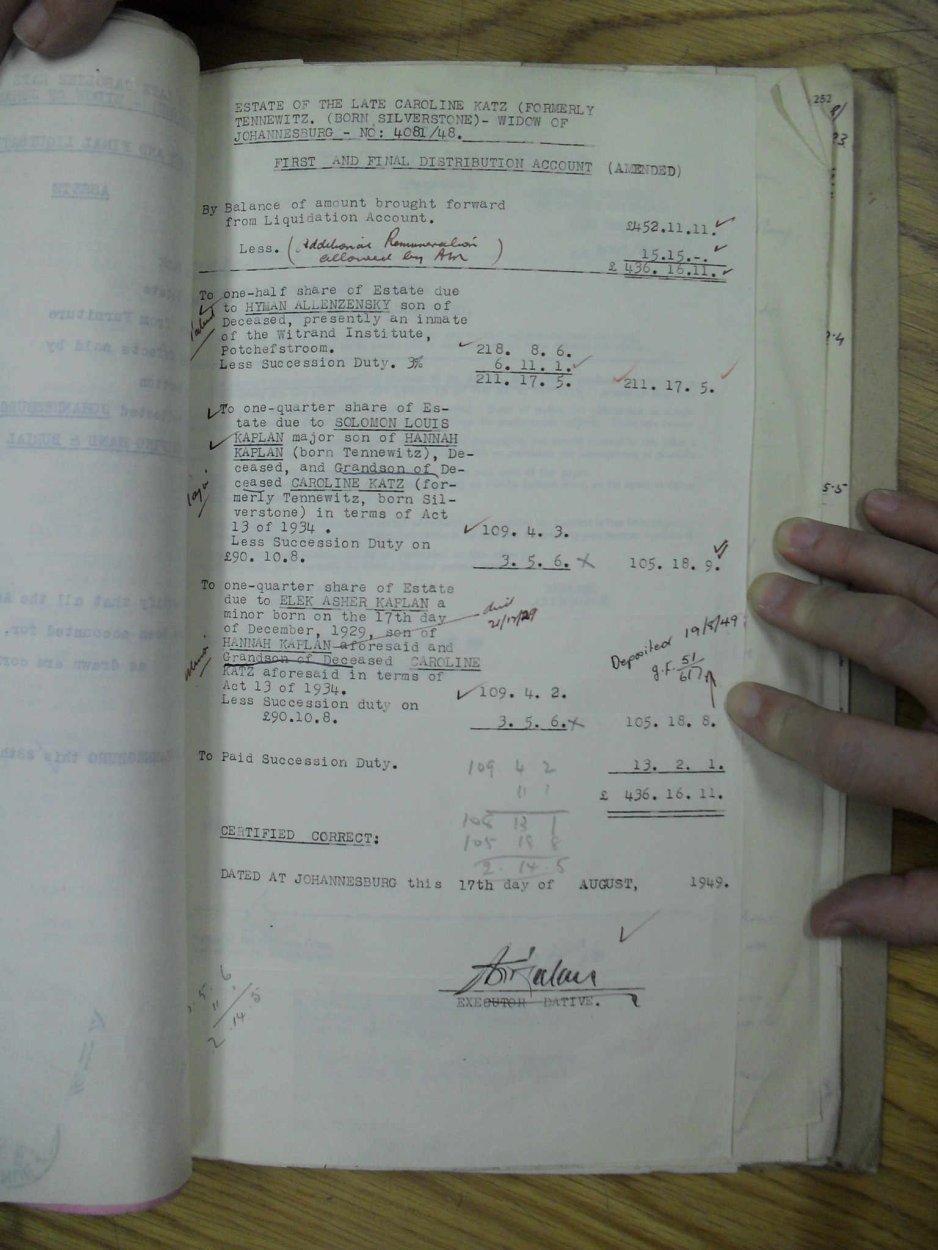 ESTATE OF THE LATE CAROLINE KATZ (FORMERLY
TENNEWITZ. (BORN SILVERSTONE)- WIDOW OF
JOHANNESBURG - NO: 4081/48.
FIRST AND FINAL DISTRIBUTION ACCOUNT (AMENDED)
By Balance of amount brought forward
from Liquidation Account. £452.11.11.
Less. (Additional Remuneration 15.15.-.
allowed by) £ 436. 16.11.
To one-half share of Estate due
to HYMAN ALLENZENSKY son of
Deceased, presently an inmate
of the Witrand Institute,
Potchefstroom. 218. 8. 6.
Less Succession Duty. 3% 6. 11. 1.
211. 17. 5. 211. 17. 5.
To one-quarter share of Es-
tate due to SOLOMON LOUIS
KAPLAN major son of HANNAH
KAPLAN (born Tennewitz), De-
ceased, and Grandson of De-
ceased CAROLINE KATZ (for-
merly Tennewitz, born Sil-
verstone) in terms of Act
13 of 1934 . 109. 4. 3.
Less Succession Duty on
£90. 10.8. 3. 5. 6. x 105. 18. 9.
To one-quarter share of Estate
due to ELEK ASHER KAPLAN a
minor born on the 17th day
of December, 1929, son of
HANNAH KAPLAN aforesaid and
Grandson of Deceased CAROLINE
KATZ aforesaid in terms of
Act 13 of 1934. 109. 4. 2.
Less Succession duty on
£90.10.8. 3. 5. 6. x 105. 18. 8.
Deposited 19/8/49
g.f. 51/617
To Paid Succession Duty. 13. 2. 1.
£ 436. 16. 11.
109 4 2
11 1
108 13 1
105 18 8
2. 14. 5
CERTIFIED CORRECT:
DATED AT JOHANNESBURG this 17th day of AUGUST, 1949.
EXECUTOR DATIVE.
252